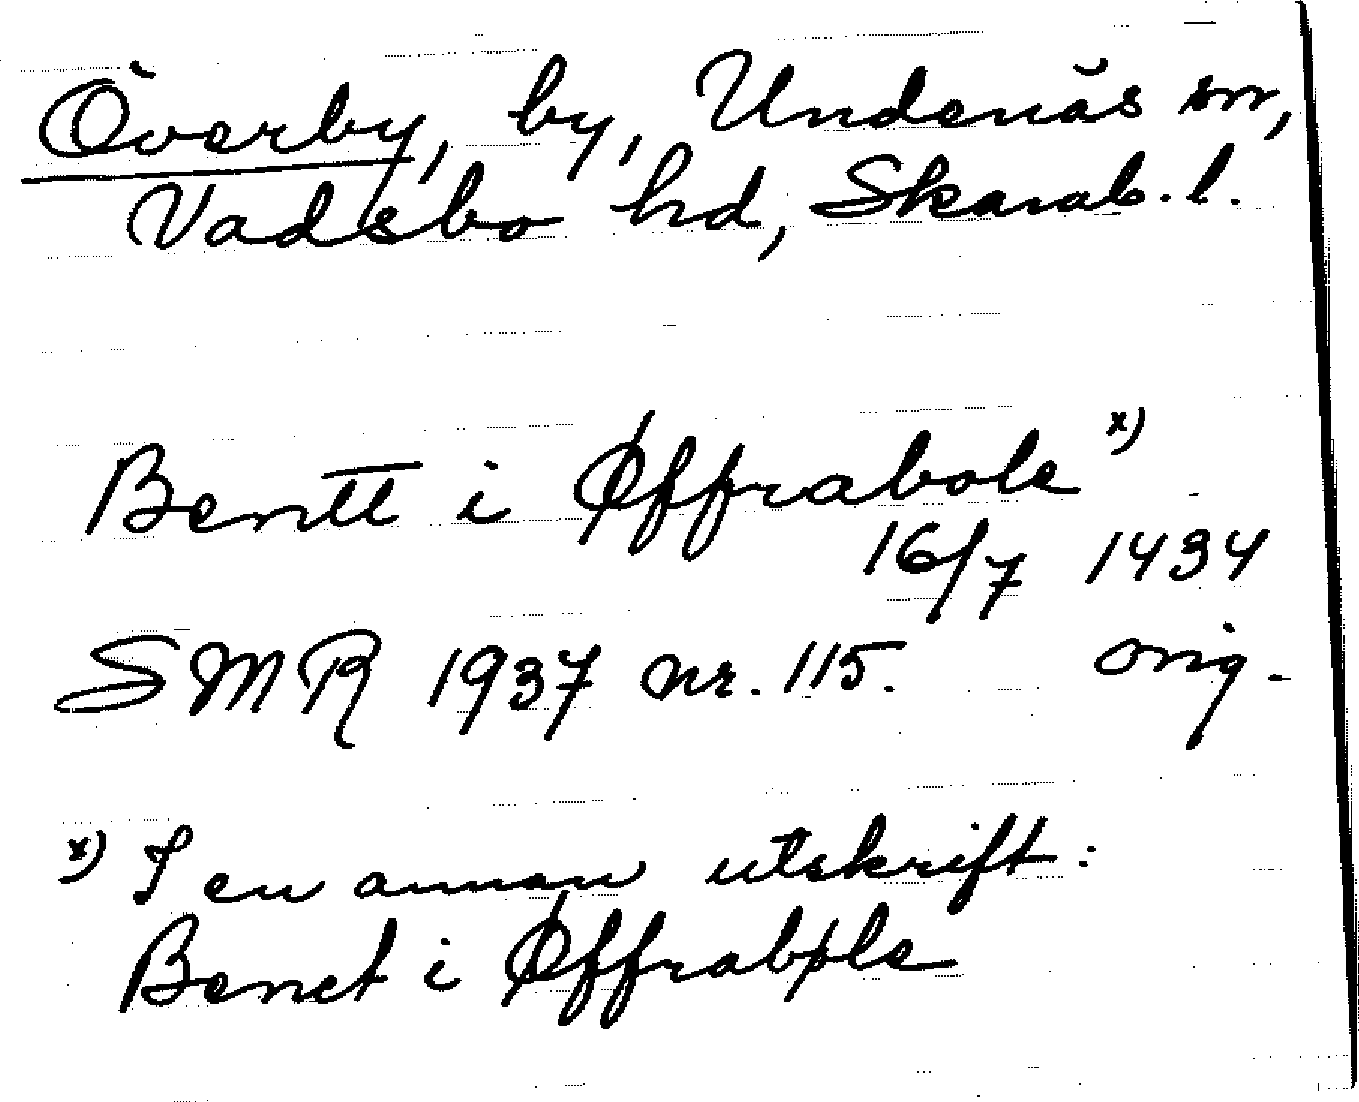 Överby, by, Undenäs sn,
Vadsbo hd, Skarab. l.
Bentt i Øffrabole x)
16/7 1434
SMR 1937 nr. 115. orig.
x) I en annan utskrift:
Benct i Øffrabøle